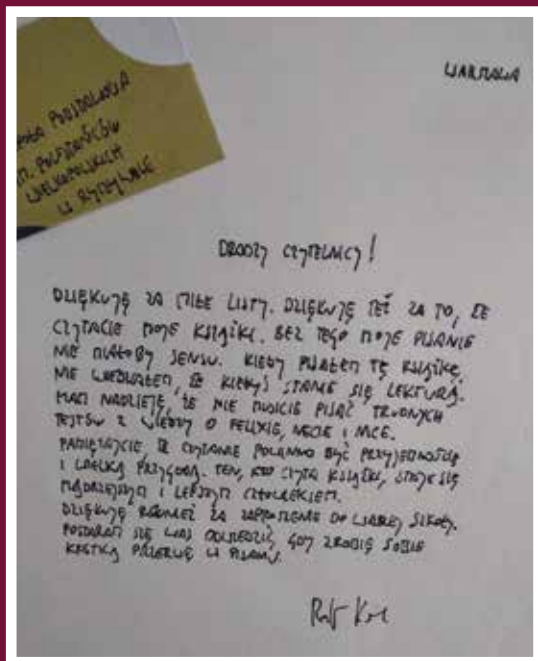 WARSZAWA
SZKOŁA PODSTAWOWA
IM. POWSTAŃCÓW
WIELKOPOLSKICH
W RYDZYNIE
DRODZY CZYTELNICY!
DZIĘKUJĘ ZA MIŁE LISTY. DZIĘKUJĘ TEŻ ZA TO, ŻE
CZYTACIE MOJE KSIĄŻKI. BEZ TEGO MOJE PISANIE
NIE MIAŁOBY SENSU. KIEDY PISAŁEM TĘ KSIĄŻKĘ,
NIE WIEDZIAŁEM, ŻE KIEDYŚ STANIE SIĘ LEKTURĄ.
MAM NADZIEJĘ, ŻE NIE MUSICIE PISAĆ TRUDNYCH
TESTÓW Z WIEDZY O FELIXIE, NECIE I NICE.
PAMIĘTAJCIE, ŻE CZYTANIE POWINNO BYĆ PRZYJEMNOŚCIĄ
I WIELKĄ PRZYGODĄ. TEN, KTO CZYTA KSIĄŻKI, STAJE SIĘ
MĄDRZEJSZYM I LEPSZYM CZŁOWIEKIEM.
DZIĘKUJĘ RÓWNIEŻ ZA ZAPROSZENIE DO WASZEJ SZKOŁY.
POSTARAM SIĘ WAS ODWIEDZIĆ, GDY ZROBIĘ SOBIE
KRÓTKĄ PRZERWĘ W PISANIU.